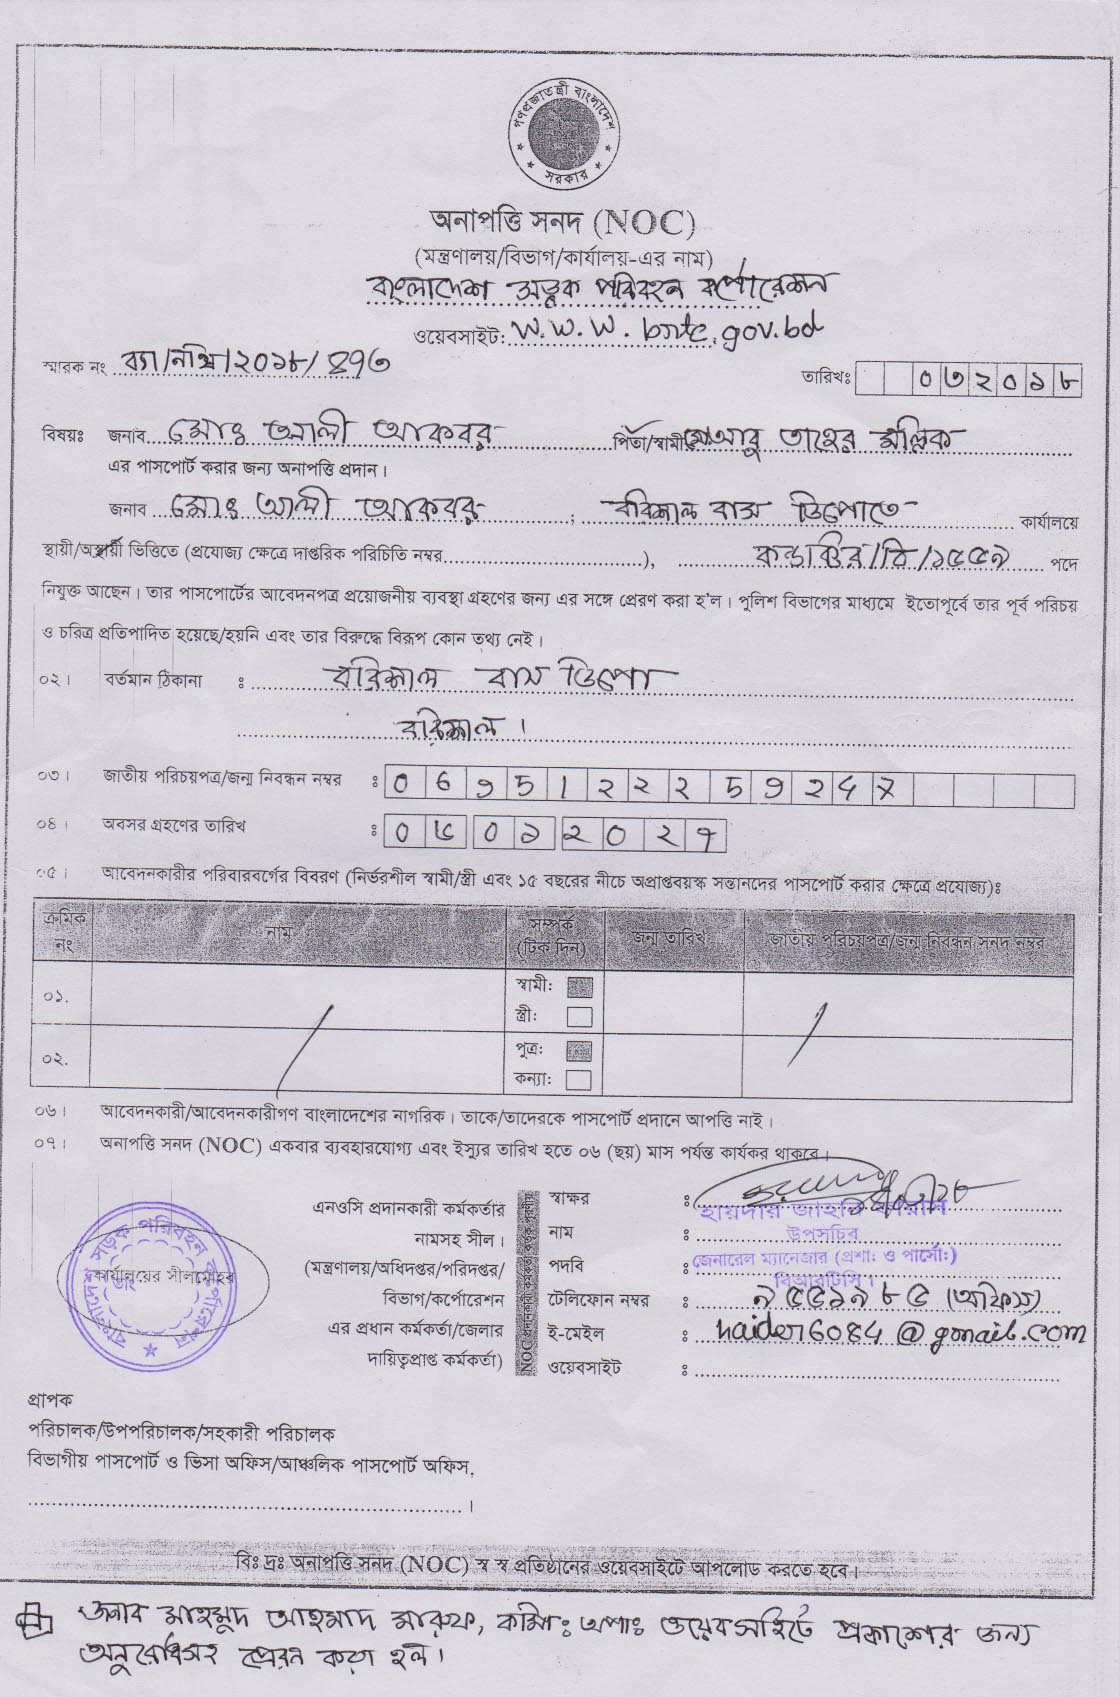 গণপ্রজাতন্ত্রী বাংলাদেশ
সরকার
অনাপত্তি সনদ (NOC)
(মন্ত্রণালয়/বিভাগ/কার্যালয়-এর নাম)
বাংলাদেশ সড়ক পরিবহন কর্পোরেশন
ওয়েবসাইট: W.W.W. brtc.gov.bd
স্মারক নং ব্যা/নথি/২০১৮/৪৭৩
তারিখঃ ০৩২০১৮
বিষয়ঃ জনাব মোঃ আলী আকবর পিতা/স্বামী মোঃ আবু তাহের মল্লিক
এর পাসপোর্ট করার জন্য অনাপত্তি প্রদান।
জনাব মোঃ আলী আকবর ; বরিশাল বাস ডিপোতে কার্যালয়ে
স্থায়ী/অস্থায়ী ভিত্তিতে (প্রযোজ্য ক্ষেত্রে দাপ্তরিক পরিচিতি নম্বর), কন্ডাক্টর/বি/১৫৫৯ পদে
নিযুক্ত আছেন। তার পাসপোর্টের আবেদনপত্র প্রয়োজনীয় ব্যবস্থা গ্রহণের জন্য এর সঙ্গে প্রেরণ করা হ'ল। পুলিশ বিভাগের মাধ্যমে ইতোপূর্বে তার পূর্ব পরিচয়
ও চরিত্র প্রতিপাদিত হয়েছে/হয়নি এবং তার বিরুদ্ধে বিরূপ কোন তথ্য নেই।
০২। বর্তমান ঠিকানা : বরিশাল বাস ডিপো
বরিশাল।
০৩। জাতীয় পরিচয়পত্র/জন্ম নিবন্ধন নম্বর :
০৪। অবসর গ্রহণের তারিখ :
০৫। আবেদনকারীর পরিবারবর্গের বিবরণ (নির্ভরশীল স্বামী/স্ত্রী এবং ১৫ বছরের নীচে অপ্রাপ্তবয়স্ক সন্তানদের পাসপোর্ট করার ক্ষেত্রে প্রযোজ্য)ঃ
ক্রমিক নং নাম সম্পর্ক (টিক দিন) জন্ম তারিখ জাতীয় পরিচয়পত্র/জন্ম নিবন্ধন সনদ নম্বর
০১. স্বামী:
স্ত্রী:
০২. পুত্র:
কন্যা:
০৬। আবেদনকারী/আবেদনকারীগণ বাংলাদেশের নাগরিক। তাকে/তাদেরকে পাসপোর্ট প্রদানে আপত্তি নাই।
০৭। অনাপত্তি সনদ (NOC) একবার ব্যবহারযোগ্য এবং ইস্যুর তারিখ হতে ০৬ (ছয়) মাস পর্যন্ত কার্যকর থাকবে।
বাংলাদেশ সড়ক পরিবহন কর্পোরেশন
কার্যালয়ের সীলমোহর
এনওসি প্রদানকারী কর্মকর্তার
নামসহ সীল।
(মন্ত্রণালয়/অধিদপ্তর/পরিদপ্তর/
বিভাগ/কর্পোরেশন
এর প্রধান কর্মকর্তা/জেলার
দায়িত্বপ্রাপ্ত কর্মকর্তা)
NOC প্রদানকারী কর্মকর্তা
স্বাক্ষর :
নাম : হায়দার জাহান
উপসচিব
পদবি : জেনারেল ম্যানেজার (প্রশাঃ ও পার্সোঃ)
বিআরটিসি।
টেলিফোন নম্বর : ৯৫৫১৯৮৫ (অফিস)
ই-মেইল : haider6084@gmail.com
ওয়েবসাইট :
প্রাপক
পরিচালক/উপপরিচালক/সহকারী পরিচালক
বিভাগীয় পাসপোর্ট ও ভিসা অফিস/আঞ্চলিক পাসপোর্ট অফিস,
।
বিঃ দ্রঃ অনাপত্তি সনদ (NOC) স্ব স্ব প্রতিষ্ঠানের ওয়েবসাইটে আপলোড করতে হবে।
জনাব মাহমুদ আহমাদ মারুফ, কম্পিঃ অপাঃ ওয়েবসাইটে প্রকাশের জন্য
অনুরোধসহ প্রেরন করা হল।